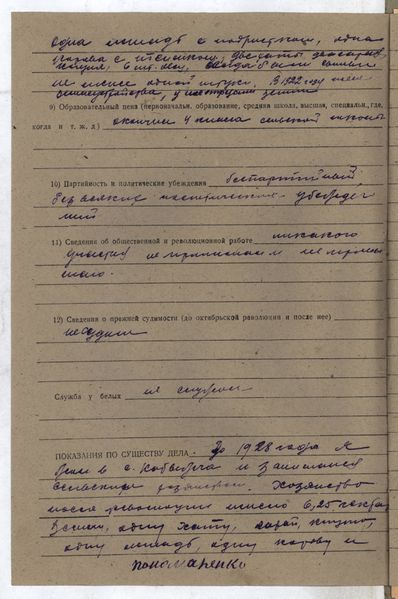 одна лошадь с подростком, одна
корова с теленком,
не менее одной штуки. В 1922 году
9) Образовательный ценз (первоначальн. образование, средняя школа, высшая, специальн., где,
когда и т. ж. д.) окончил 4 класса сельской школы
10) Партийность и политические убеждения беспартийный,
без всяких политических убежде
ний
11) Сведения об общественной и революционной работе никакого
участия не принимал и не прини
мало.
12) Сведения о прежней судимости (до октябрьской революции и после нее)
не судим
Служба у белых не служил
ПОКАЗАНИЯ ПО СУЩЕСТВУ ДЕЛА. До 1928 года я
жил в с. и занимался
сельским хозяйством. Хозяйство
после революции имело 6,25 гектар
земли, одну хату, сарай, клуню,
одну лошадь, одну корову и
Пономаренко